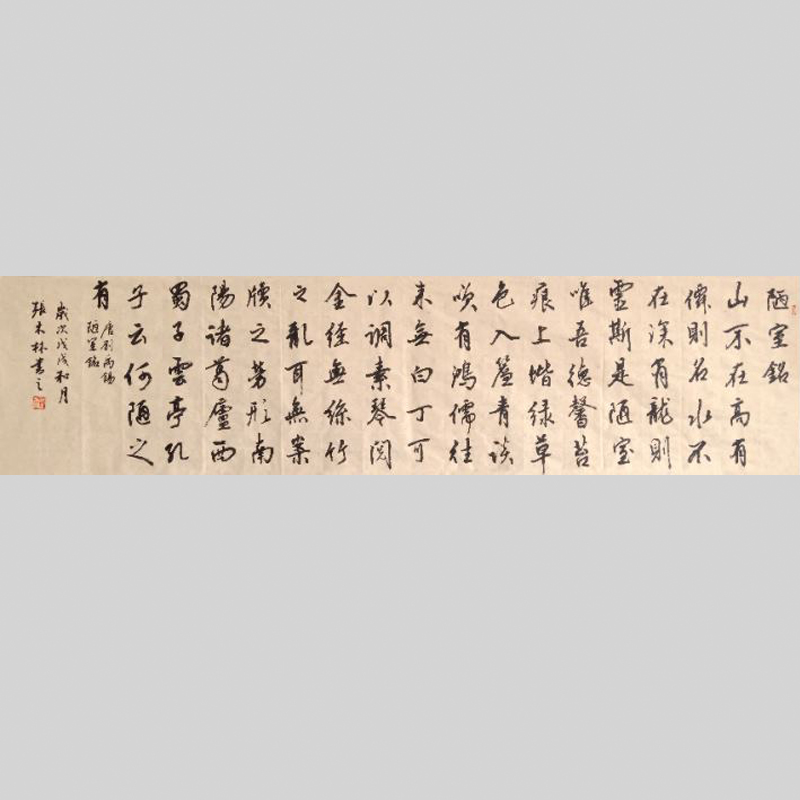 陋室銘
山不在高有
僊則名水不
在深有龍則
靈斯是陋室
唯吾德馨苔
痕上堦绿草
色入簾青谈
咲有鴻儒往
来無白丁可
以调素琴閲
金经無絲竹
之亂耳無案
牘之勞形南
陽諸葛廬西
蜀子雲亭孔
子云何陋之
有
唐劉禹錫
陋室銘
歲次戊戌和月
張木林書之